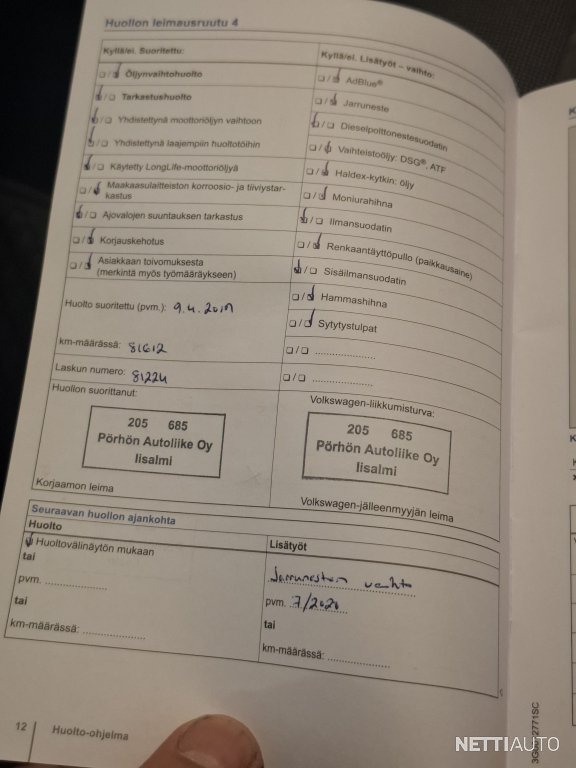 Huollon leimausruutu 4
Kyllä/ei. Suoritettu:
☐/☑ Öljynvaihtohuolto
☑/☐ Tarkastushuolto
☑/☐ Yhdistettynä moottoriöljyn vaihtoon
☑/☐ Yhdistettynä laajempiin huoltotöihin
☑/☐ Käytetty LongLife-moottoriöljyä
☐/☑ Maakaasulaitteiston korroosio- ja tiiviystar-
kastus
☑/☐ Ajovalojen suuntauksen tarkastus
☐/☑ Korjauskehotus
☐/☑ Asiakkaan toivomuksesta
(merkintä myös työmääräykseen)
Huolto suoritettu (pvm.): 9.4.2019
km-määrässä: 81612
Laskun numero: 81224
Huollon suorittanut:
205 685
Pörhön Autoliike Oy
Iisalmi
Korjaamon leima
Kyllä/ei. Lisätyöt – vaihto:
☐/☑ AdBlue®
☐/☑ Jarruneste
☑/☐ Dieselpolttonestesuodatin
☐/☑ Vaihteistoöljy: DSG®, ATF
☐/☑ Haldex-kytkin: öljy
☐/☑ Moniurahihna
☑/☐ Ilmansuodatin
☐/☑ Renkaantäyttöpullo (paikkausaine)
☑/☐ Sisäilmansuodatin
☐/☑ Hammashihna
☐/☑ Sytytystulpat
☐/☐ ....................
☐/☐ ....................
Volkswagen-liikkumisturva:
205 685
Pörhön Autoliike Oy
Iisalmi
Volkswagen-jälleenmyyjän leima
Seuraavan huollon ajankohta
Huolto
☑ Huoltovälinäytön mukaan
tai
pvm. ....................
tai
km-määrässä: ....................
Lisätyöt
Jarrunesteen vaihto
pvm. 7/2020
tai
km-määrässä: ....................
12 Huolto-ohjelma
NETTIAUTO